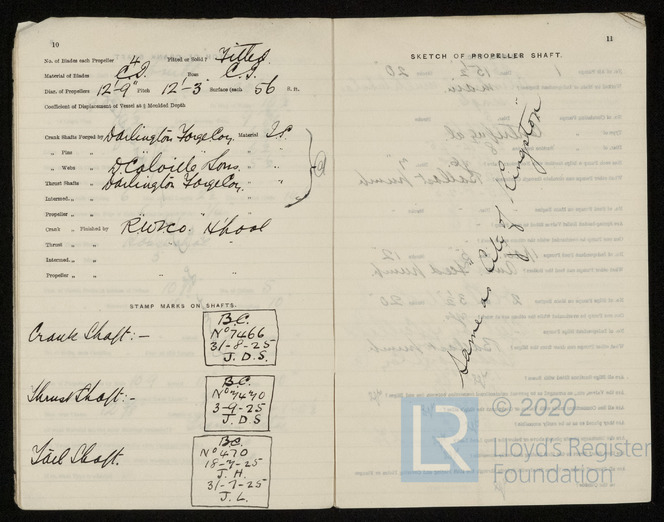 10
No. of Blades each Propeller 4 Fitted or Solid? Fitted
Material of Blades C.I. Boss C.I.
Diam. of Propellers 12-9" Pitch 12'-3 Surface (each 56 S. ft.
Coefficient of Displacement of Vessel at ¾ Moulded Depth
Crank Shafts Forged by Darlington Forge Coy. Material I.S.
" Pins " " "
" Webs " D. Colville & Sons. " "
Thrust Shafts " Darlington Forge Coy. " "
Intermed. " " " "
Propeller " " " "
Crank " Finished by
Thrust " " "
Intermed. " " "
Propeller " " "
STAMP MARKS ON SHAFTS.
Crank Shaft:-
B.C.
No 7466
31-8-25
J.D.S.
Thrust Shaft:-
B.C.
No 7470
3-9-25
J.D.S
Tail Shaft.
B.C.
No 470
18-7-25
J.H.
31-7-25
J.L.
11
SKETCH OF PROPELLER SHAFT.
Same as City of Kingston
© 2020
LR
Lloyd's Register
Foundation